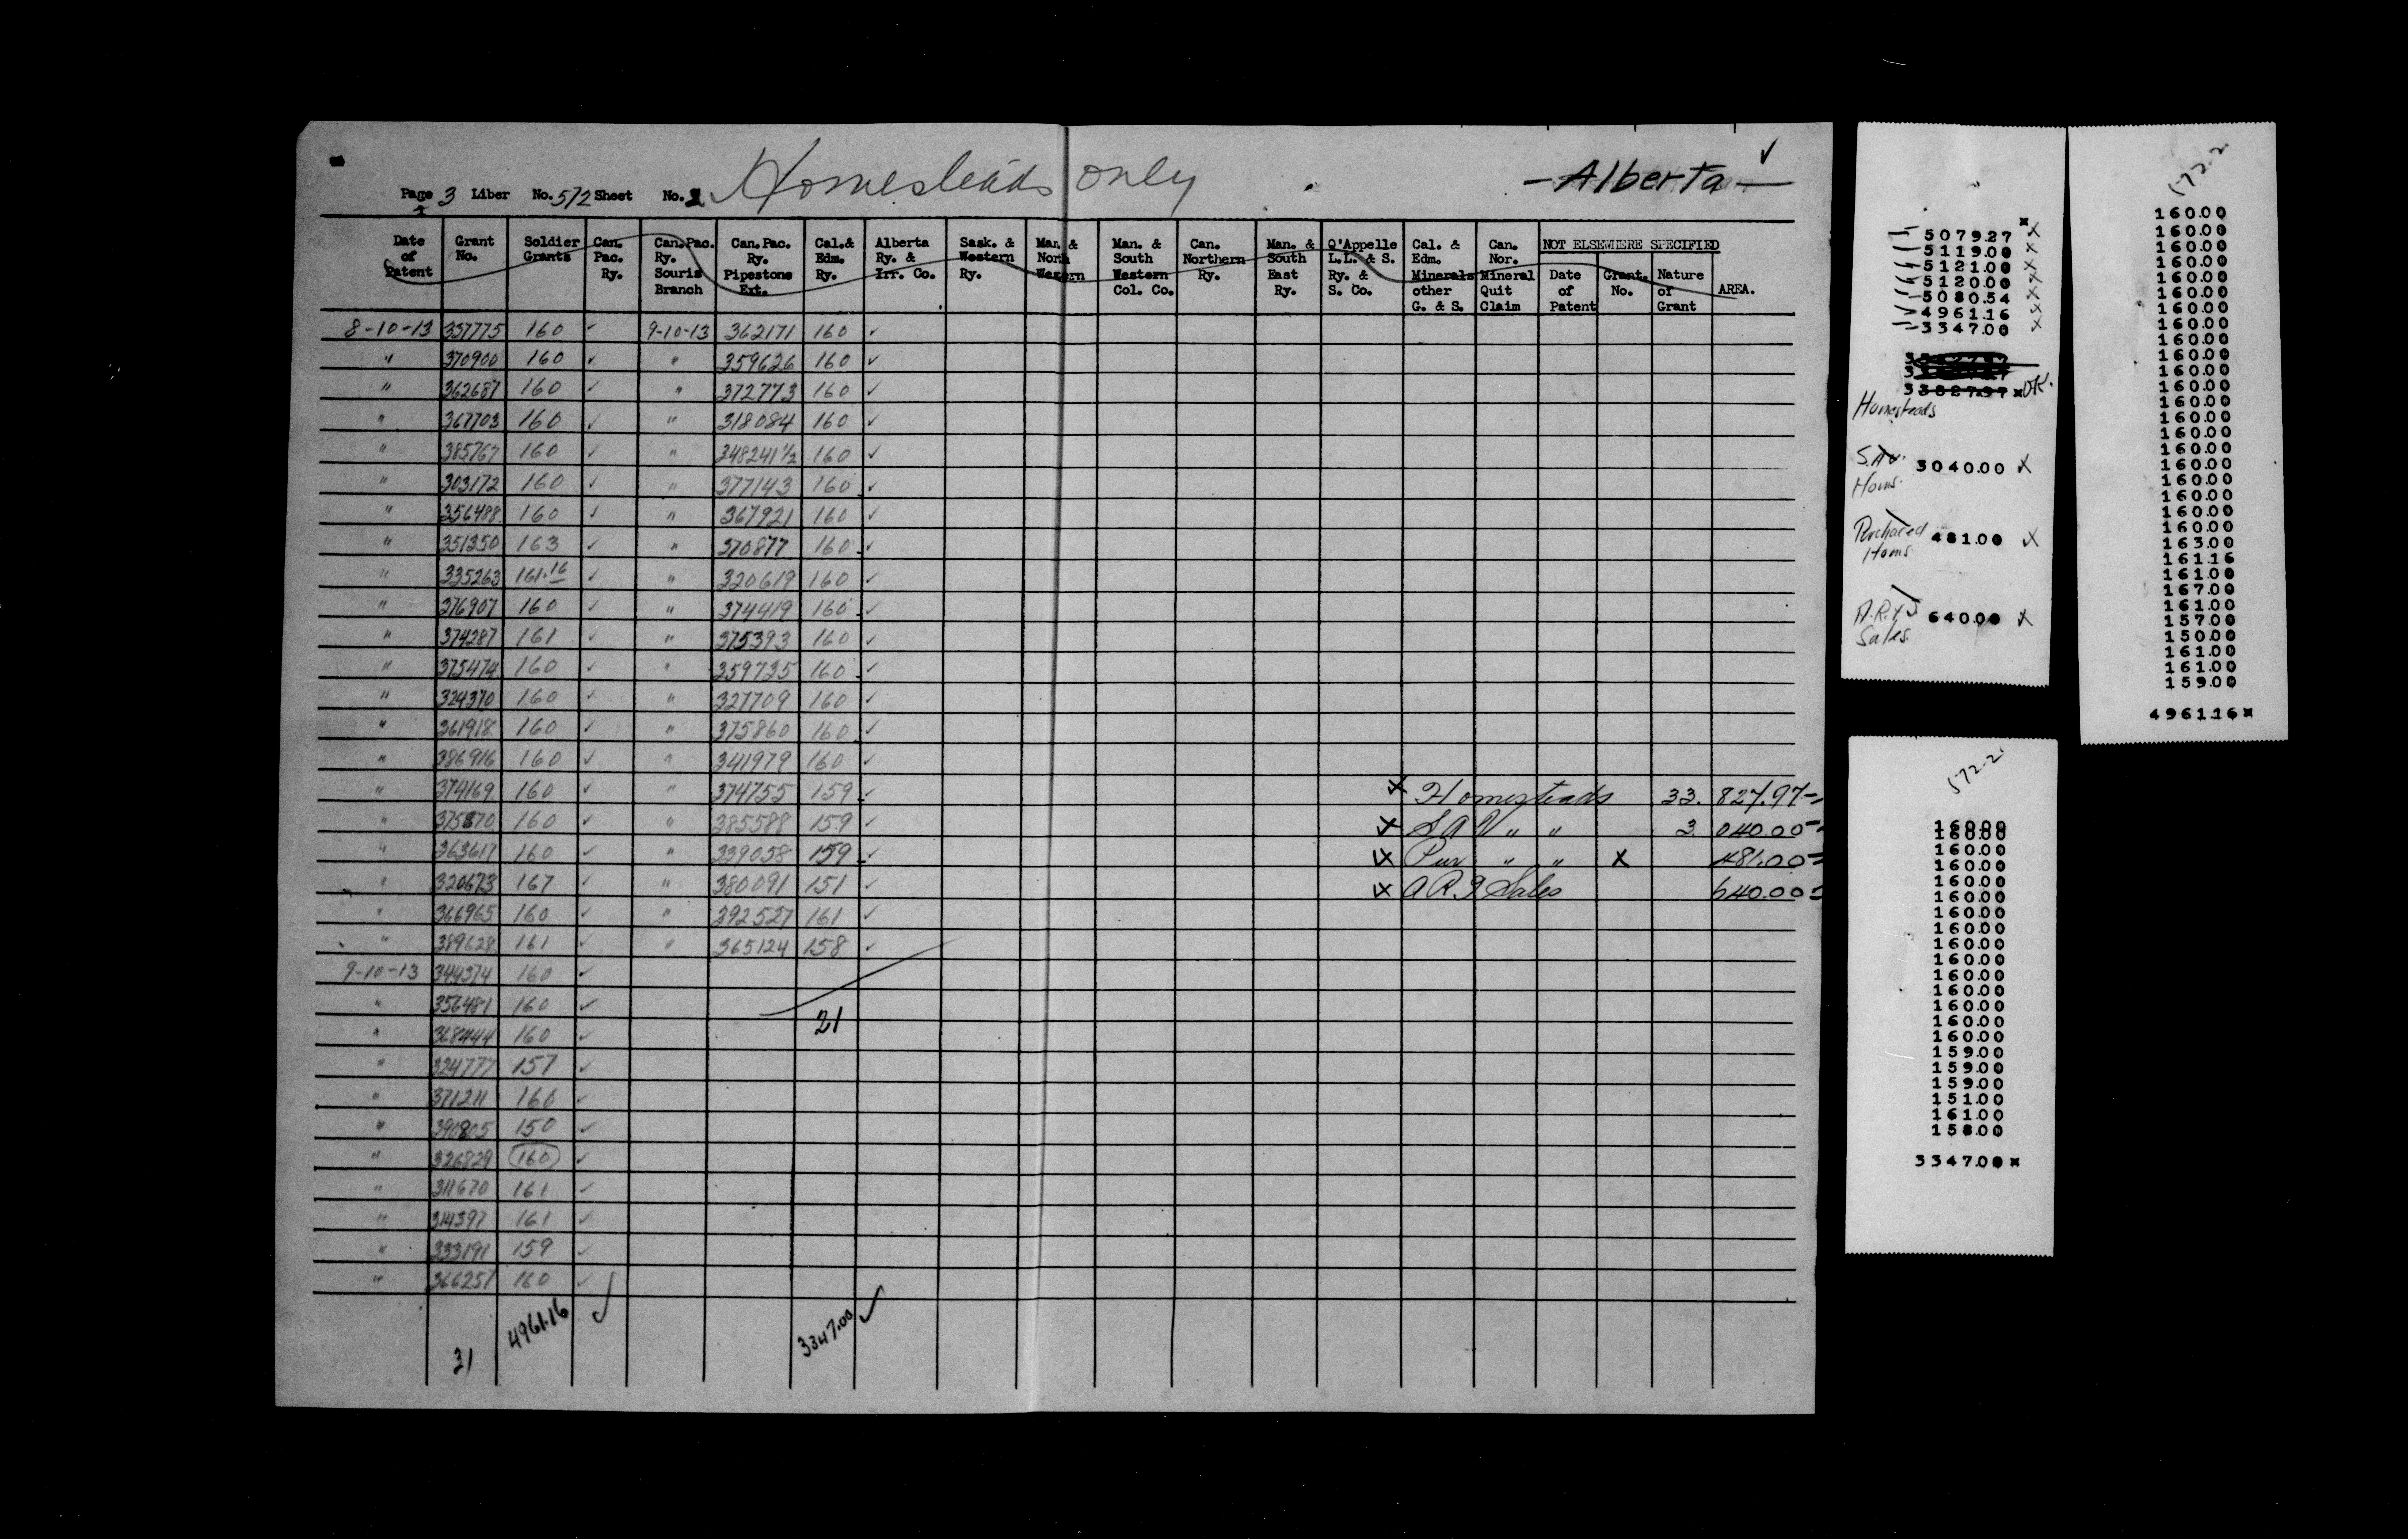 Homesteads only
- Alberta - ✓
Page 3 Liber No. 572 Sheet No. 2
Date of Patent | Grant No. | Soldier Grants | Can. Pac. Ry. | Can. Pac. Ry. Souris Branch | Can. Pac. Ry. Pipestone Ext. | Cal. & Edm. Ry. | Alberta Ry. & Irr. Co. | Sask. & Western Ry. | Man. & North Western | Man. & South Western Col. Co. | Can. Northern Ry. | Man. & South East Ry. | Q'Appelle L.L. & S. Ry. & S. Co. | Cal. & Edm. Minerals other G. & S. | Can. Nor. Mineral Quit Claim | NOT ELSEWHERE SPECIFIED Date of Patent | Grant. No. | Nature of Grant | AREA.
8-10-13 357775 160 ✓ 9-10-13 362171 160 ✓
" 370900 160 ✓ " 359626 160 ✓
" 362687 160 ✓ " 372773 160 ✓
" 367703 160 ✓ " 318084 160 ✓
" 385767 160 ✓ " 348241 1/2 160 ✓
" 303172 160 ✓ " 377143 160 ✓
" 356488 160 ✓ " 367921 160 ✓
" 351350 163 ✓ " 370877 160 ✓
" 335263 161.16 ✓ " 320619 160 ✓
" 376907 160 ✓ " 374419 160 ✓
" 374287 161 ✓ " 375393 160 ✓
" 375474 160 ✓ " 359735 160 ✓
" 324370 160 ✓ " 327709 160 ✓
" 361918 160 ✓ " 375860 160 ✓
" 386916 160 ✓ " 341979 160 ✓
" 374169 160 ✓ " 374755 159 ✓ x Homesteads 33,827.97
" 375870 160 ✓ " 385588 159 ✓ x S A V " " 3,040.00
" 363617 160 ✓ " 339058 159 ✓ x Pur " " x 481.00
" 320673 167 ✓ " 380091 151 ✓ x A R. & Sales 640.00
" 366965 160 ✓ " 392527 161 ✓
" 389628 161 ✓ " 365124 158 ✓
9-10-13 344374 160 ✓
" 356481 160 ✓ 21
" 368444 160 ✓
" 324777 157 ✓
" 371211 160 ✓
" 390805 150 ✓
" 326829 160 ✓
" 311670 161 ✓
" 314397 161 ✓
" 333191 159 ✓
" 366257 160 ✓
31 4961.16 ✓ 3347.00 ✓
5079.27 x
5119.00 x
5121.00 x
5120.00 x
5080.54 x
4961.16 x
3347.00 x
33827.97 OK.
Homesteads
S.A.V. Homs. 3040.00 x
Purchased Homs. 481.00 x
A.R. & S Sales. 640.00 x
572-2
160.00
160.00
160.00
160.00
160.00
160.00
160.00
160.00
160.00
160.00
160.00
160.00
160.00
160.00
160.00
160.00
160.00
160.00
160.00
160.00
160.00
163.00
161.16
161.00
167.00
161.00
157.00
150.00
161.00
161.00
159.00
4961.16
572-2
160.00
160.00
160.00
160.00
160.00
160.00
160.00
160.00
160.00
160.00
160.00
160.00
160.00
160.00
160.00
159.00
159.00
159.00
151.00
161.00
158.00
3347.00